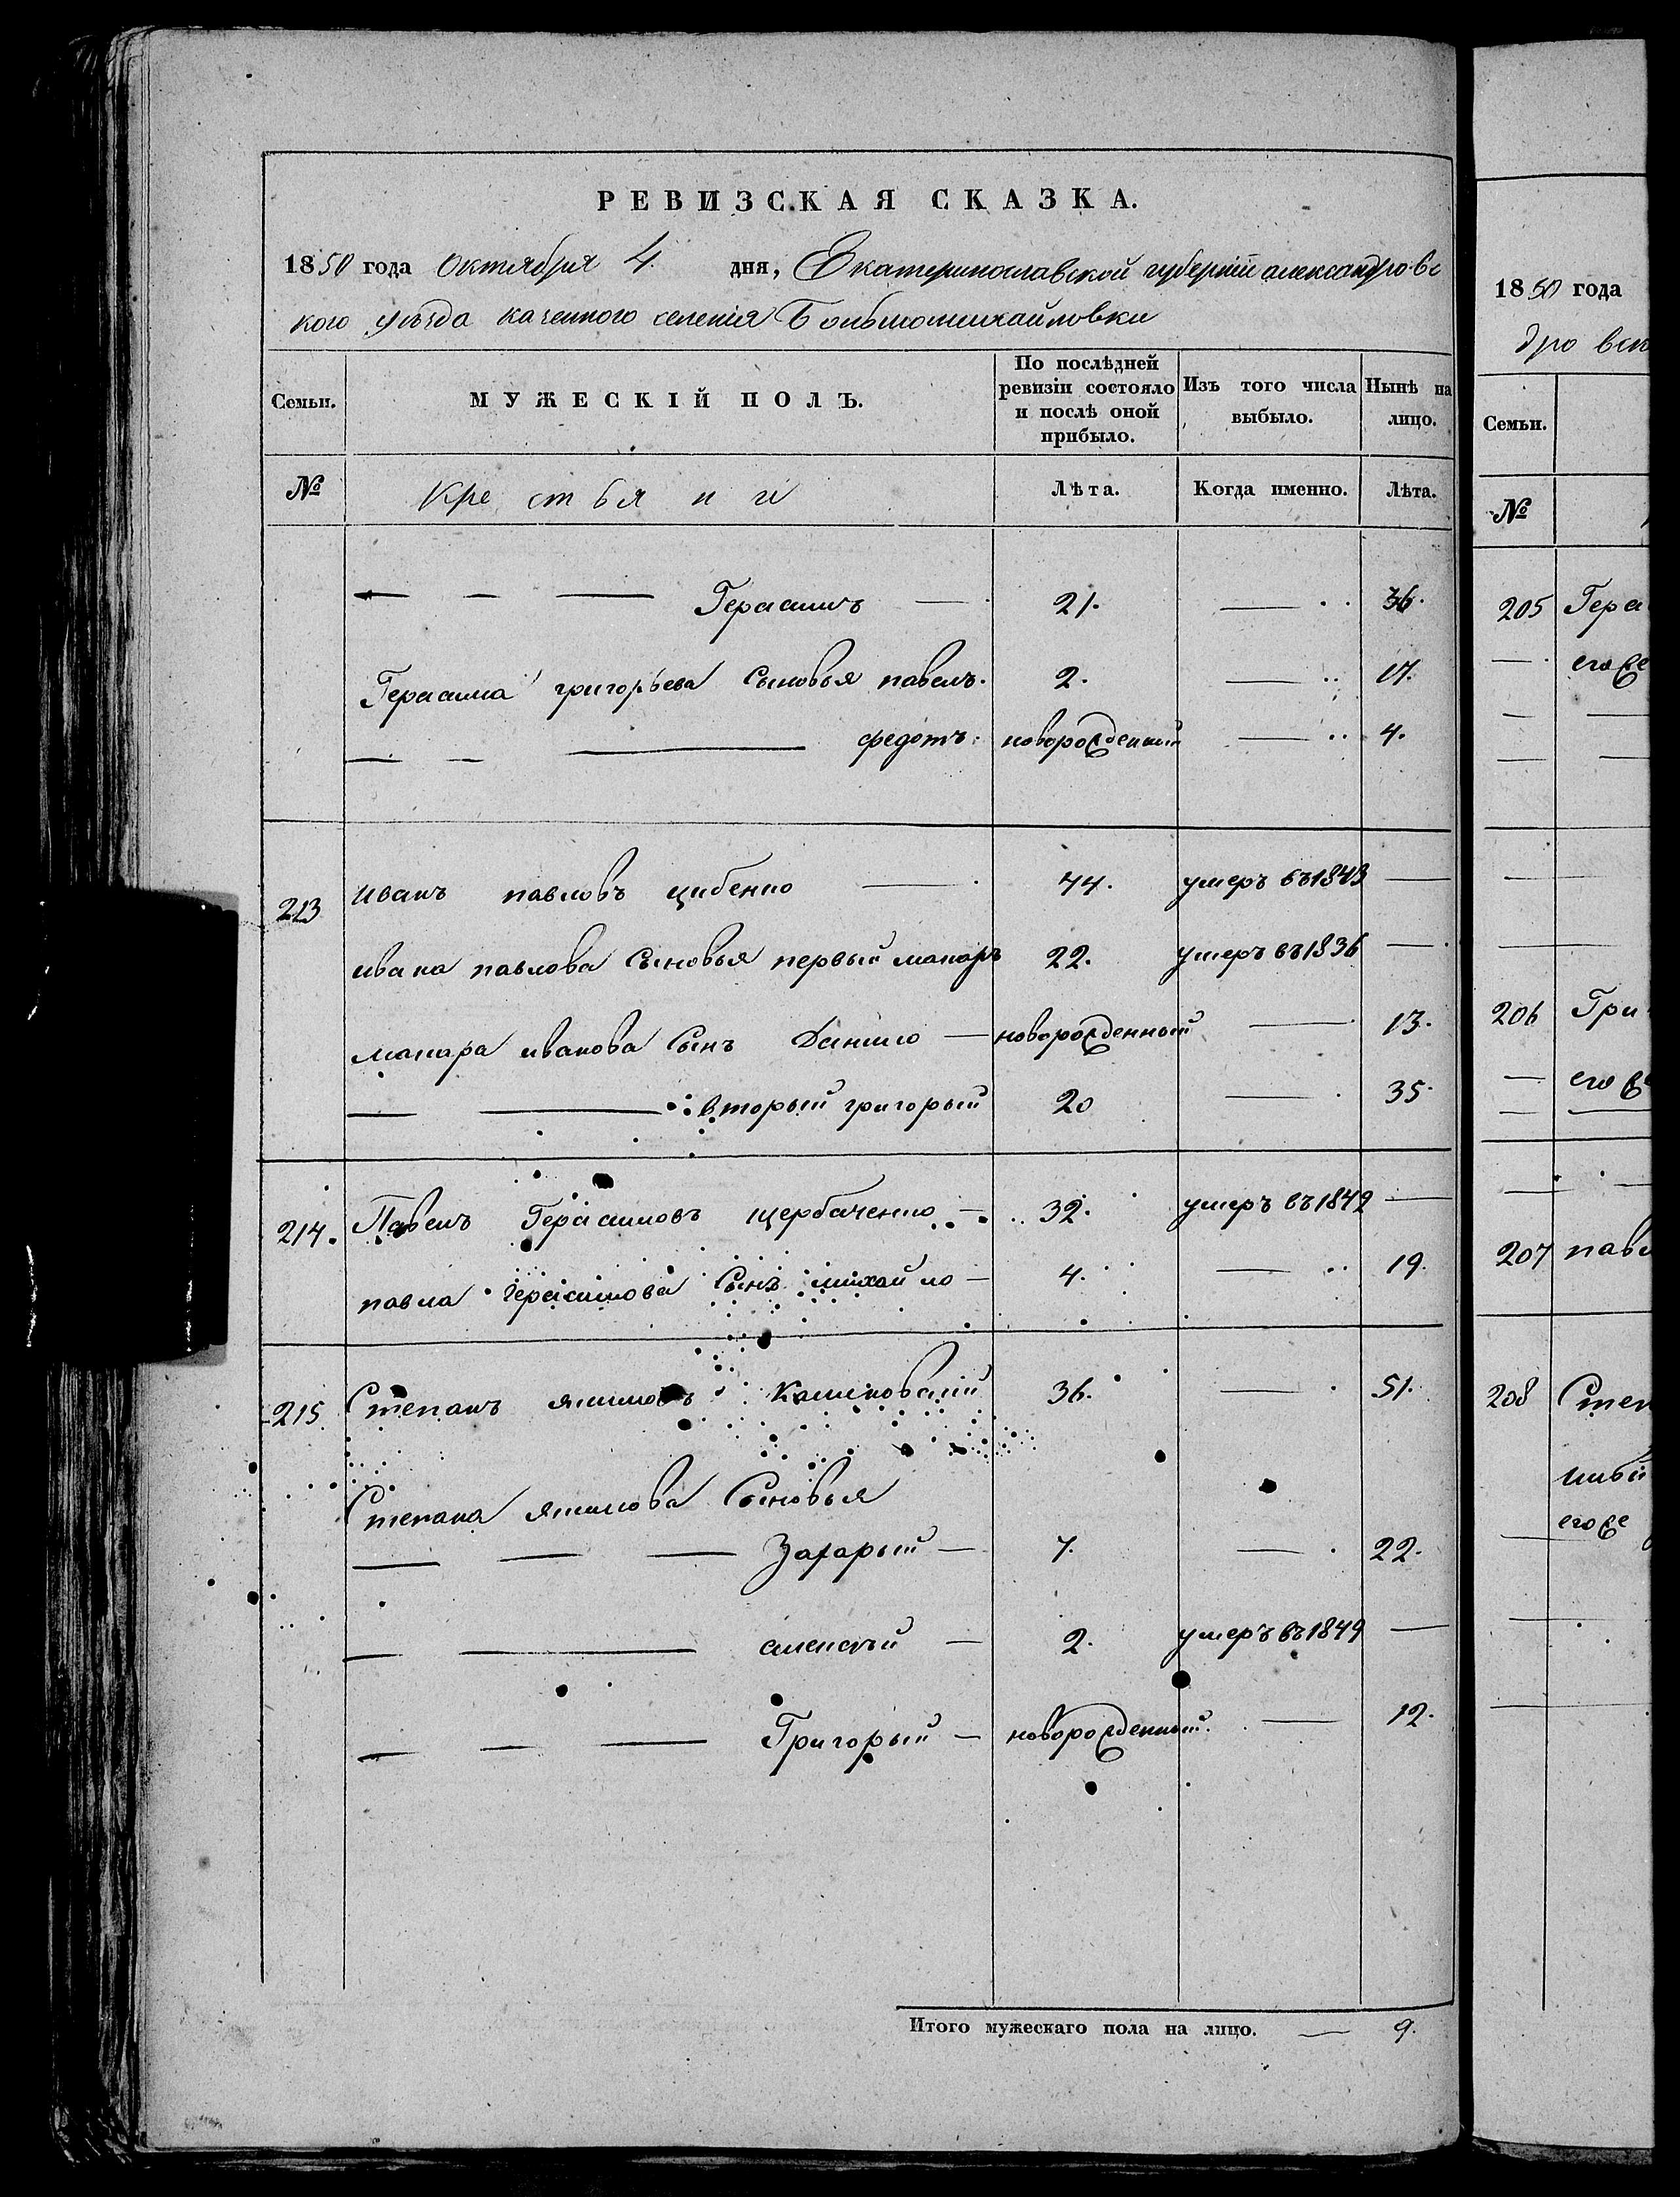 РЕВИЗСКАЯ СКАЗКА.
1850 года Октября 4. дня, Екатеринославской губерніи александровс
кого уѣзда казенного селенія Большомихайловки
Семьи. МУЖЕСКІЙ ПОЛЪ. По послѣдней ревизіи состояло и послѣ оной прибыло. Изъ того числа выбыло. Нынѣ на лицо.
№ Крестьяни Лѣта. Когда именно. Лѣта.
— — — Герасимъ — 21. — 36.
Герасима григорьева Сыновья павелъ. 2. — 17.
— — — федотъ. новорожденный — 4.
213 иванъ павловъ цибенко — 44. умеръ въ 1843 —
ивана павлова Сыновья первый макаръ 22. умеръ въ 1836 —
макара иванова Сынъ Данило — новорожденный — 13.
— — вторый григорый 20 — 35.
214. Павелъ Герасимовъ щербаченко — 32. умеръ въ 1849 —
павла герасимова Сынъ михайло — 4. — 19.
215 Степанъ якимовъ 36. — 51.
Степана якимова Сыновья
— — — Захарый — 7. — 22.
— — алексѣй — 2. умеръ въ 1849 —
— — — Григорый — новорожденный. — 12.
Итого мужескаго пола на лицо. — 9.
1850 года
дровск
Семьи.
№
205 Гера
его се
206 Гри
его
207 павл
208 Степ
его се